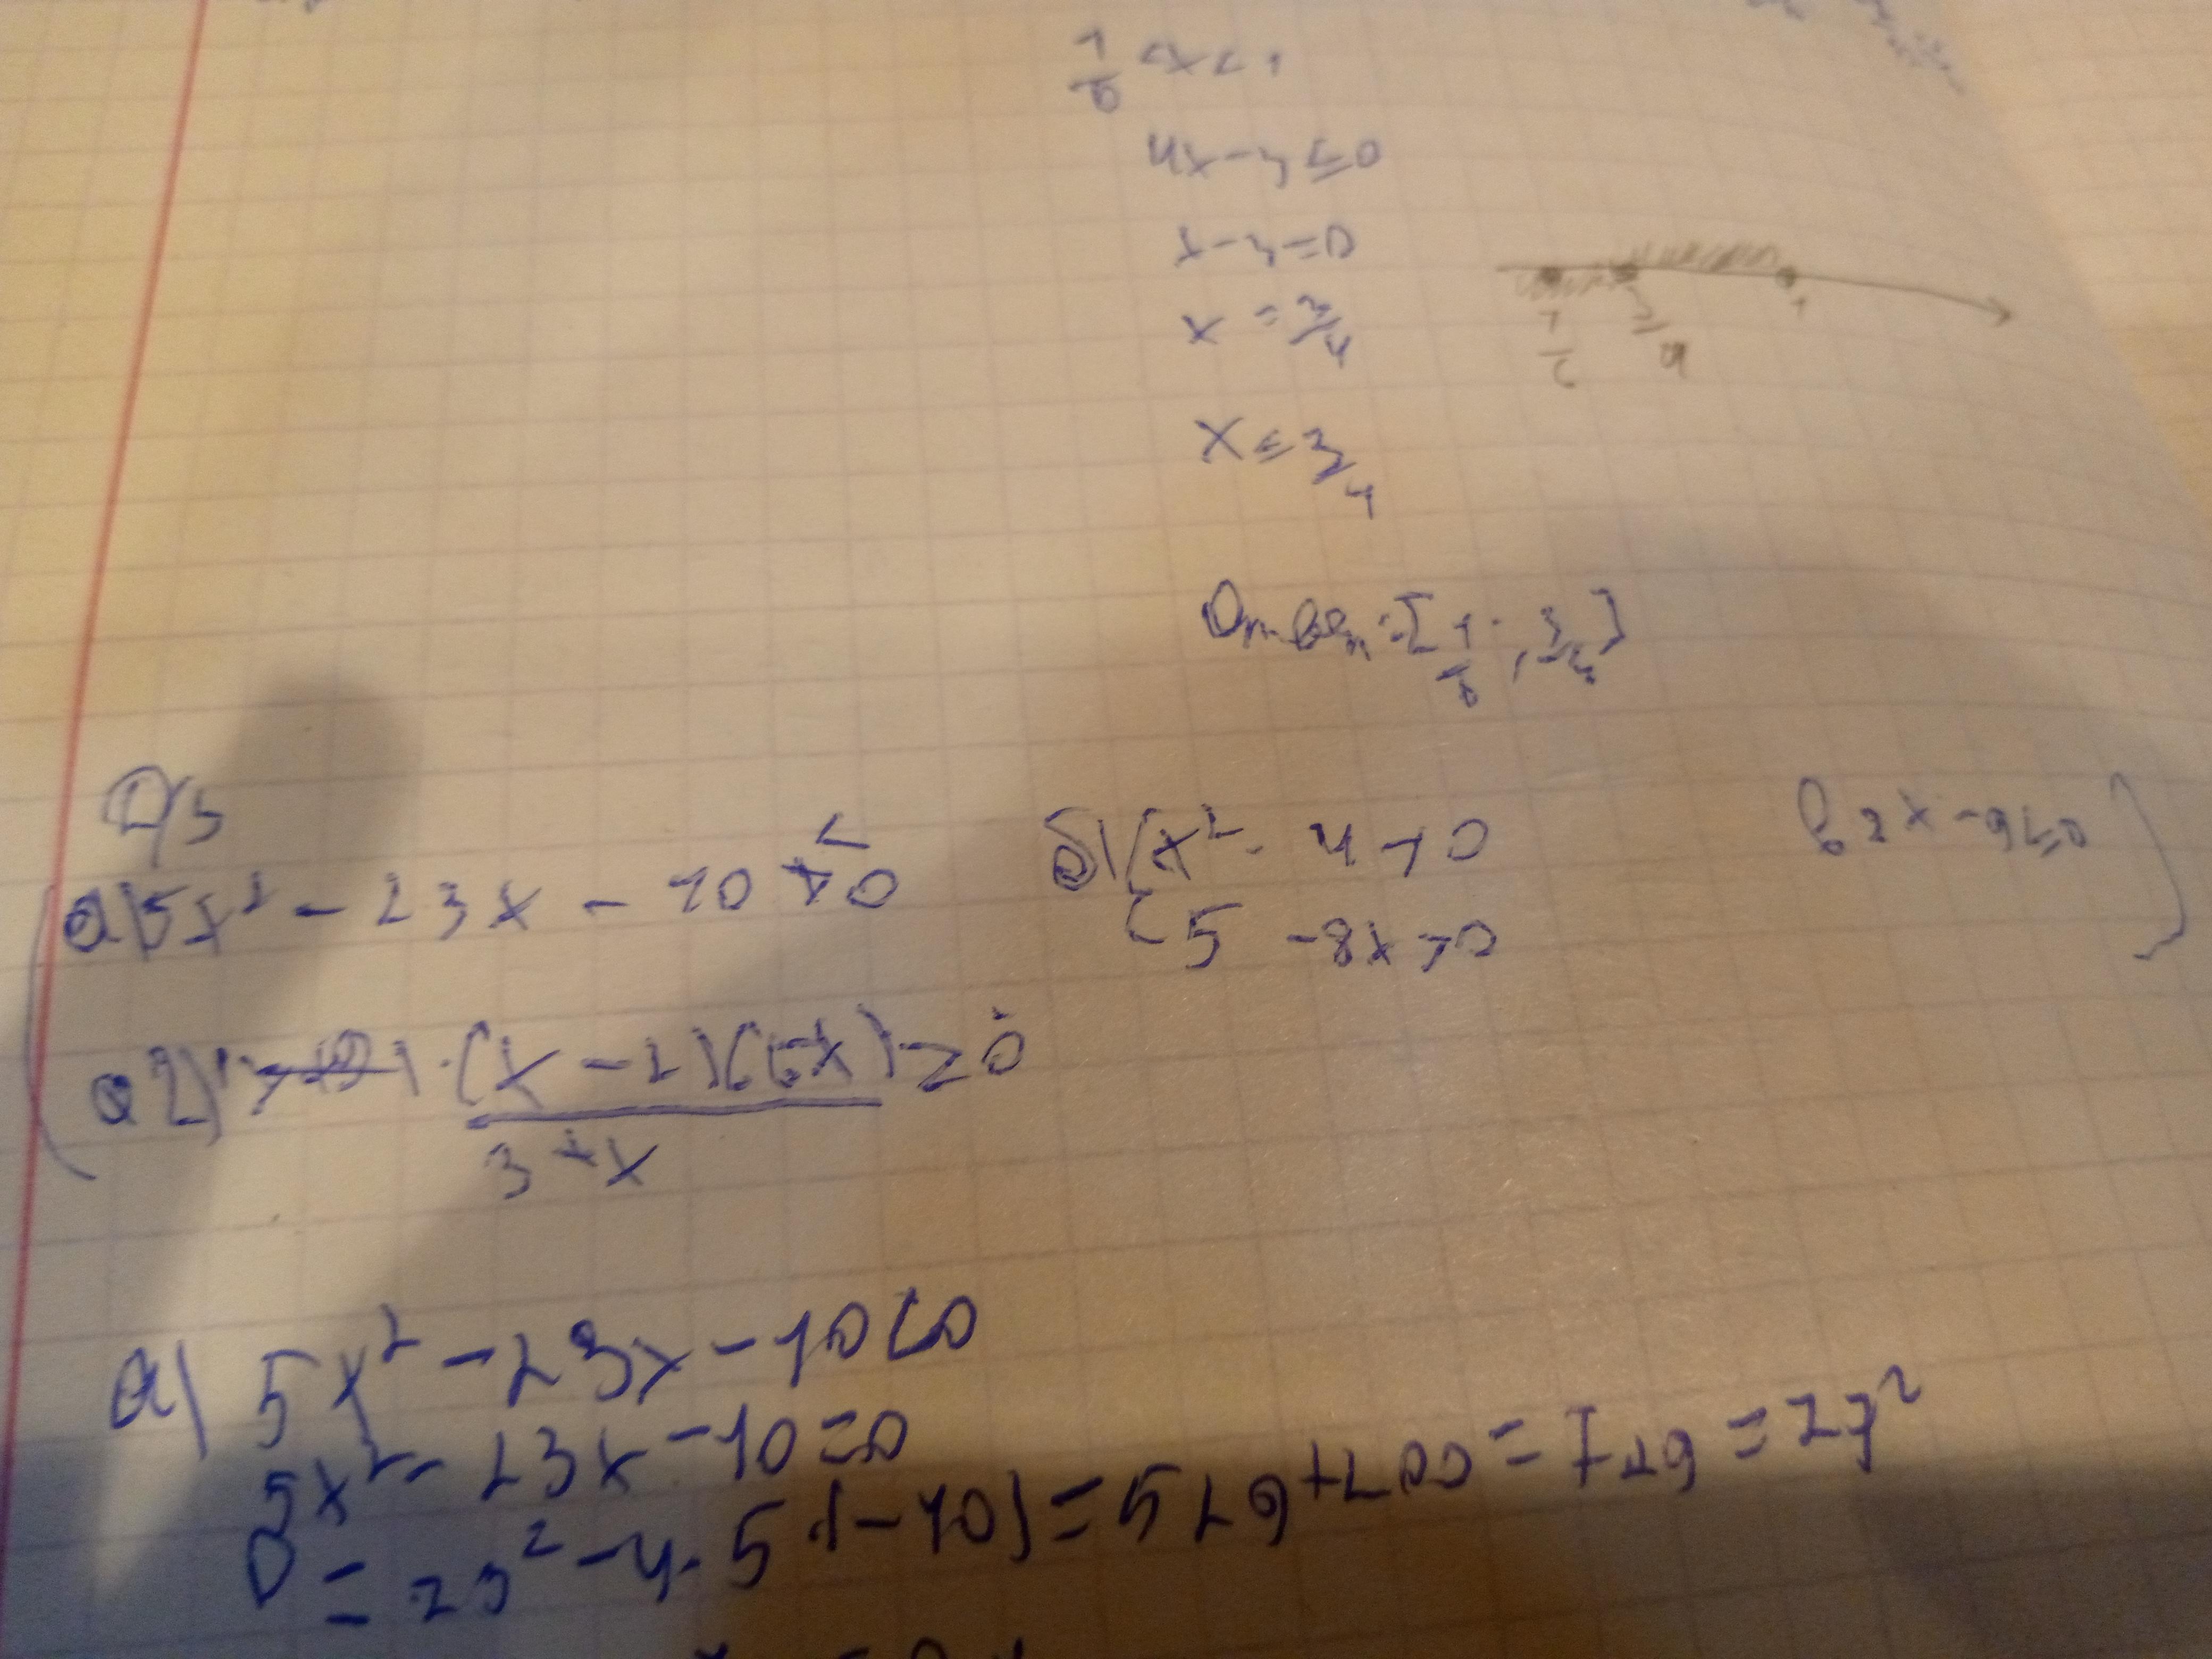 1/6 <x< 1
4x-3≤0
x-3=0
x = 3/4
x≤3/4
1/6 3/4 1
Ответ:[1/6 ; 3/4]
Д/з
а) 5x² - 23x - 10 < 0
б) { x² - 4 > 0
{ 5 - 8x > 0
в 2x - 9≤0
2) (x - 2)(6-x) ≥ 0
3 + x
а) 5x² - 23x - 10 < 0
5x² - 23x - 10 = 0
D = 23² - 4 · 5 · (-10) = 529 + 200 = 729 = 27²